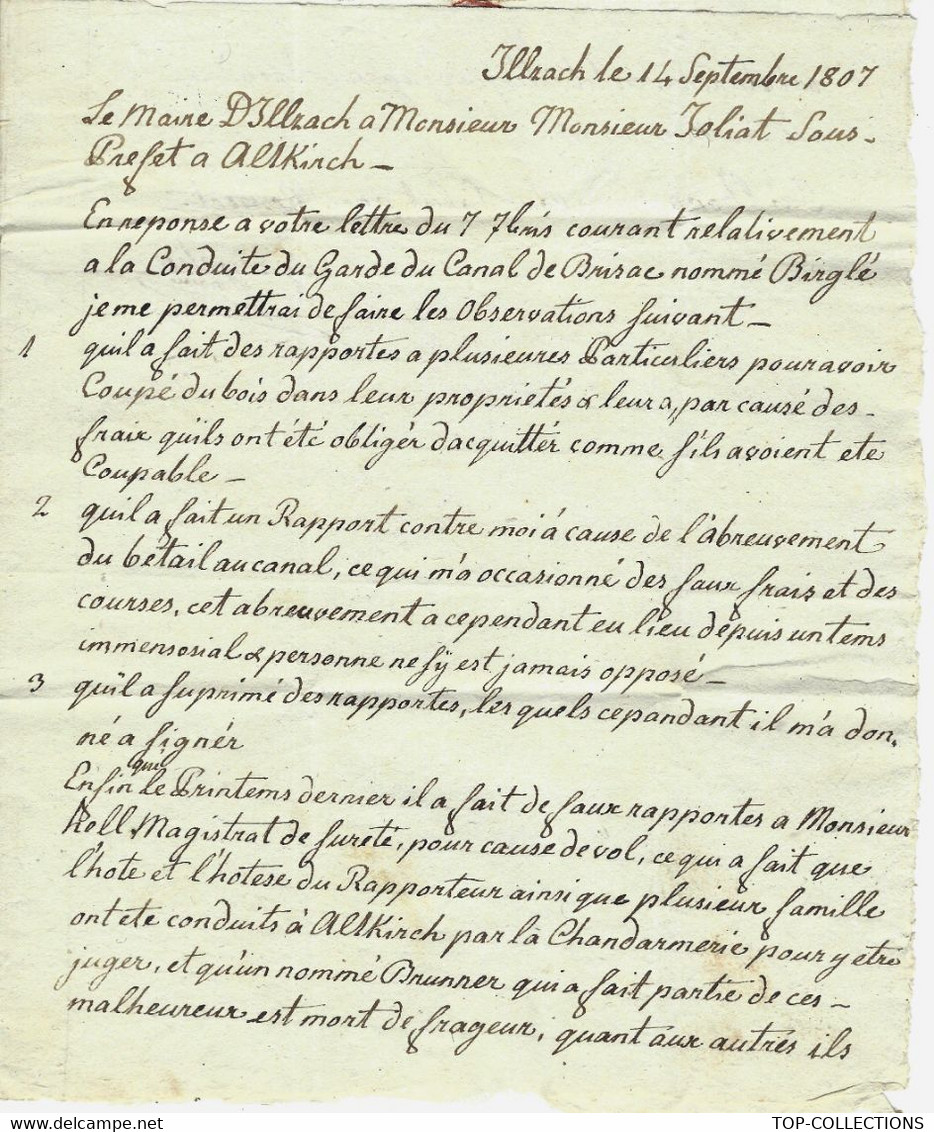 Illzach le 14 Septembre 1807
Le Maire D'Illzach a Monsieur Monsieur Joliat Sous-
Prefet a Altkirch –
En reponse a votre lettre du 7 7bris courant relativement
a la Conduite du Garde du Canal de Brisac nommé Birglé
je me permettrai de faire les Observations suivant –
1 quil a fait des rapportes a plusieures Particuliers pour avoir
Coupé du bois dans leur proprietés & leur a, par causé des-
frair qu'ils ont été obligér d'acquittér comme s'ils avoient ete
Coupable –
2 qu'il a fait un Rapport contre moi á cause de l'abreuvement
du bétail au canal, ce qui m'a occasionné des faux frais et des
courses, cet abreuvement a cependant eu lieu depuis un tems
immensosial & personne ne s'ÿ est jamais opposé –
3 qu'il a suprimé des rapportes, les quels cepandant il m'a don,
né a signér
qui
Enfin le Printems dernier il a fait de faux rapportes a Monsieur
Koll Magistrat de sureté, pour cause de vol, ce qui a fait que
l'hote et l'hotese du Rapporteur ainsi que plusieur famille
ont ete conduits à Altkirch par la Chandarmerie pour y etre
juger, et qu'un nommé Brunner qui a fait partie de ces –
malheureux est mort de frageur, quant aux autres ils
TOP-COLLECTIONS